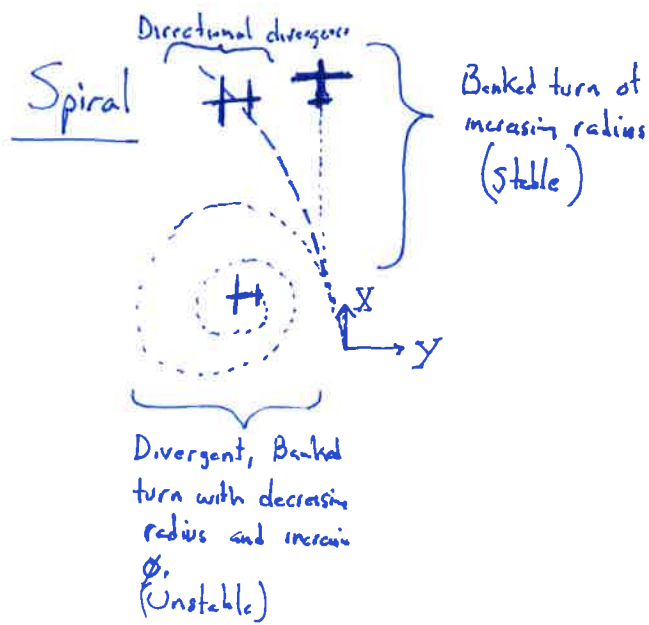 Directional divergence
Spiral
Banked turn of
increasing radius
(Stable)
X
Y
Divergent, Banked
turn with decreasing
radius and increasin
ϕ.
(Unstable)